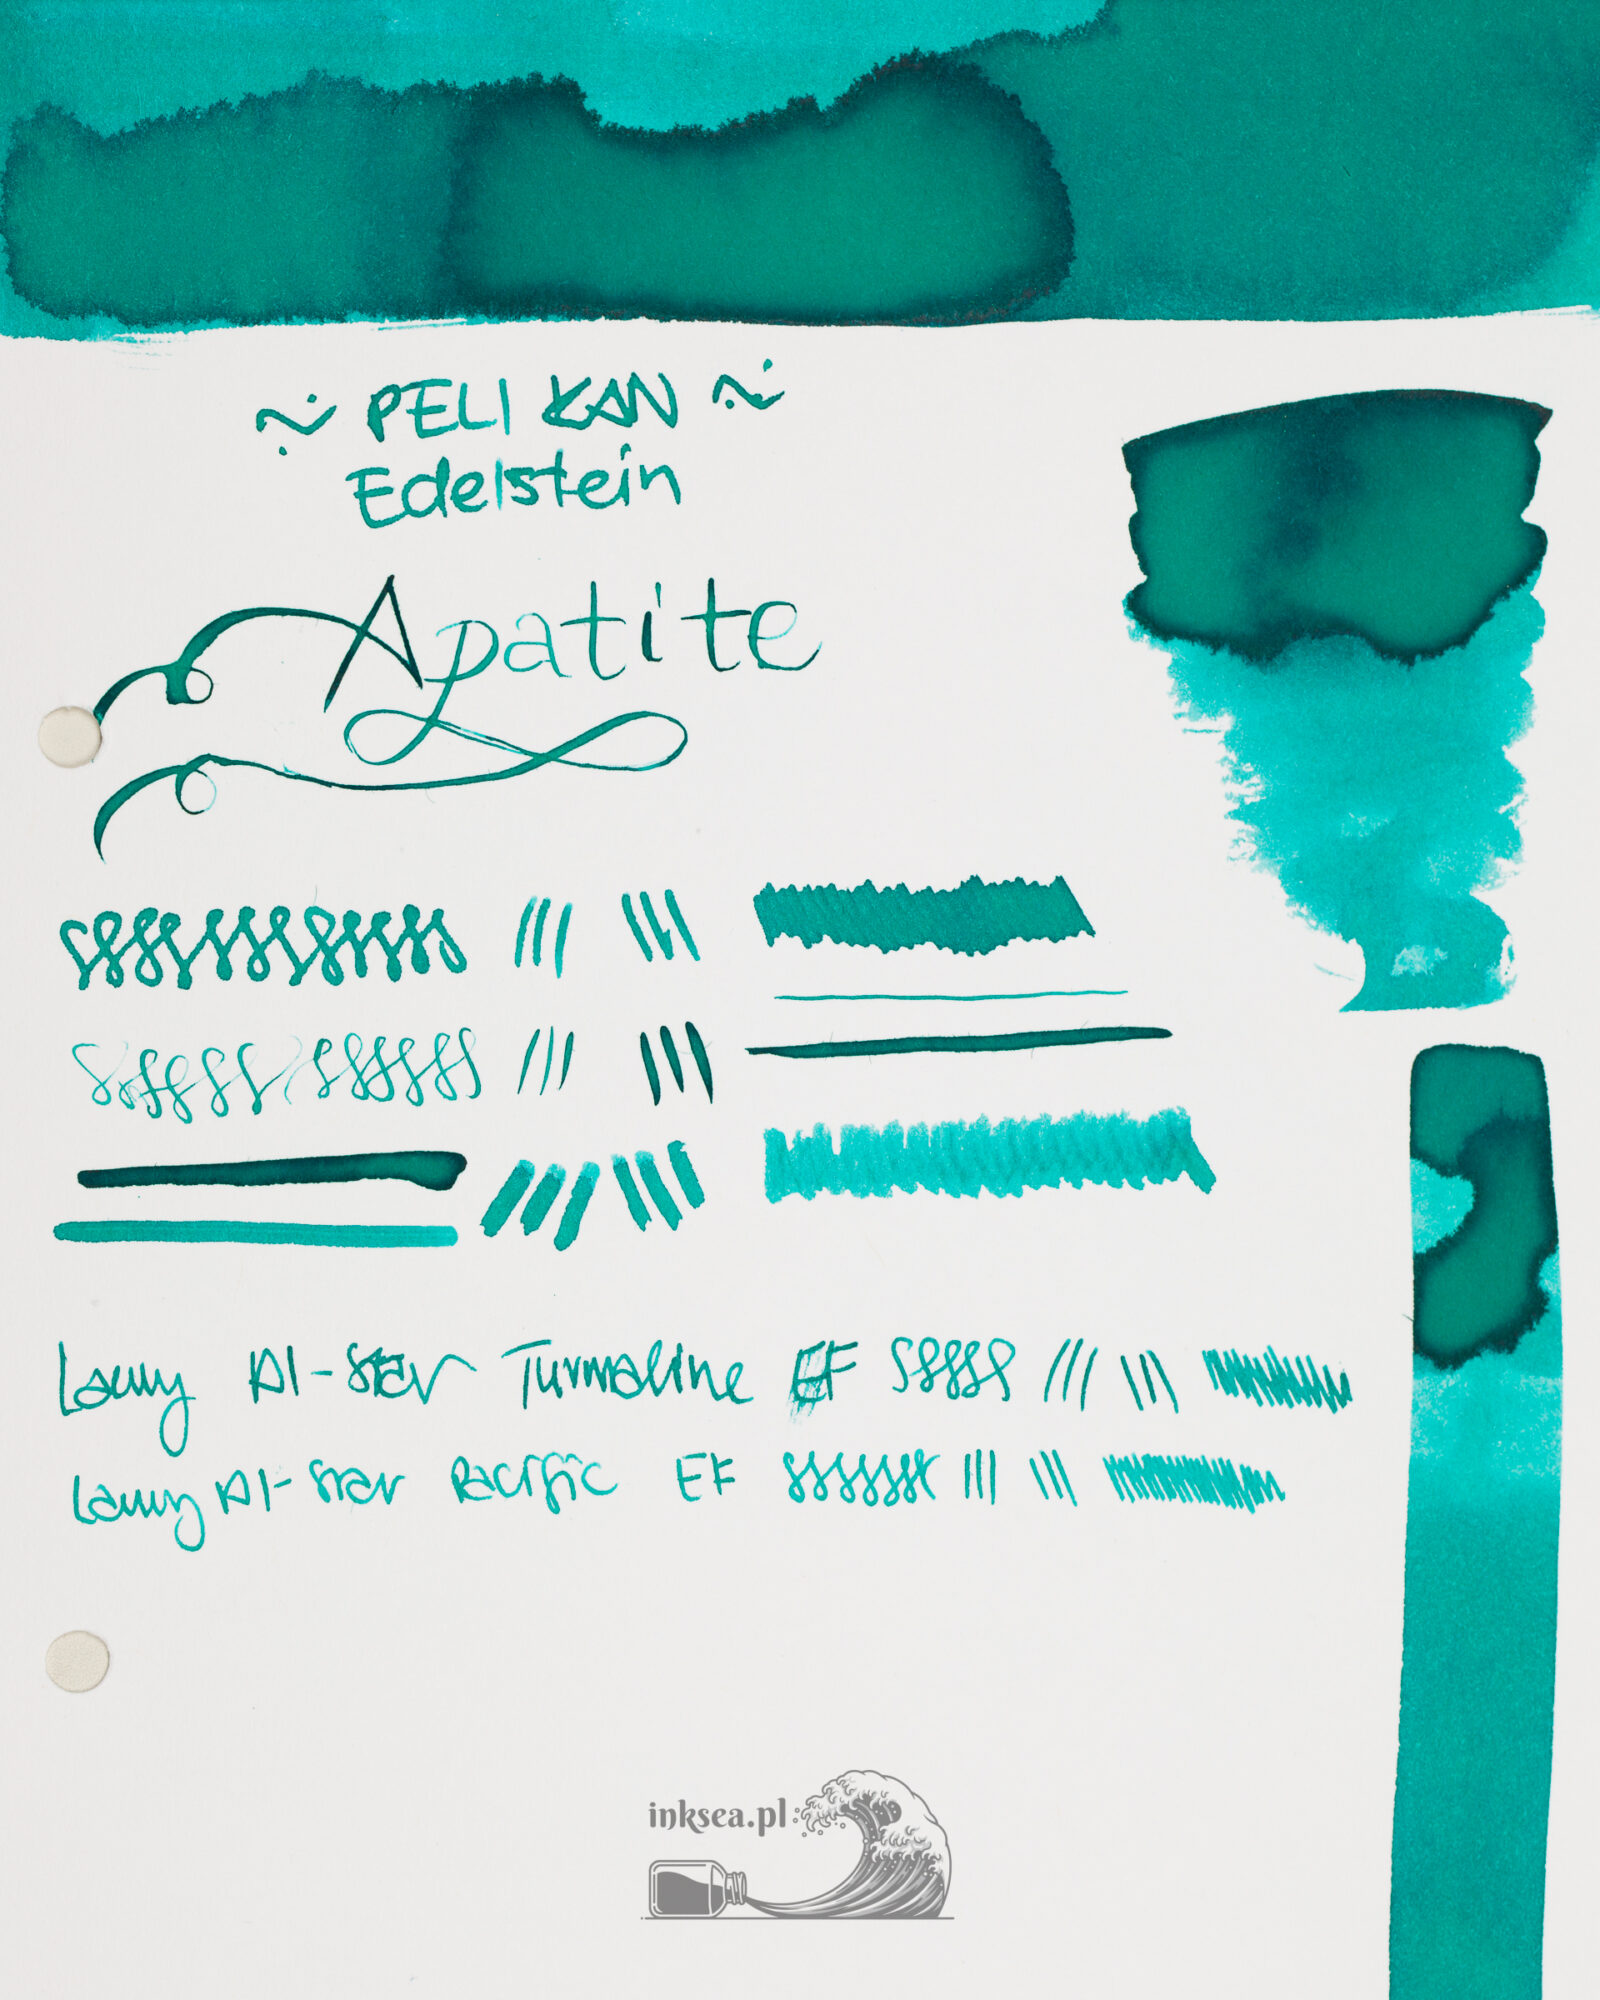 PELIKAN
Edelstein
Apatite
Lamy Al-Star Turmaline EF
Lamy Al-Star Pacific EF
inksea.pl